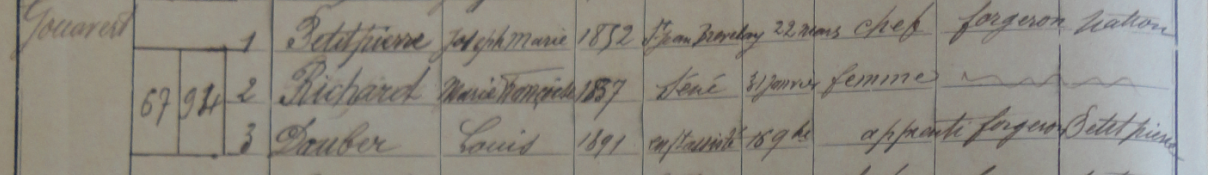 Gouavert 1 Petitpierre Joseph Marie 1852 St Jean Brevelay 22 mars chef forgeron Natton
67 94 2 Richard Marie Françoise 1857 Séné 31 Janvier femme
3 Dauber Louis 1891 enft assisté 16 9bre apprenti forgeron Petitpierre